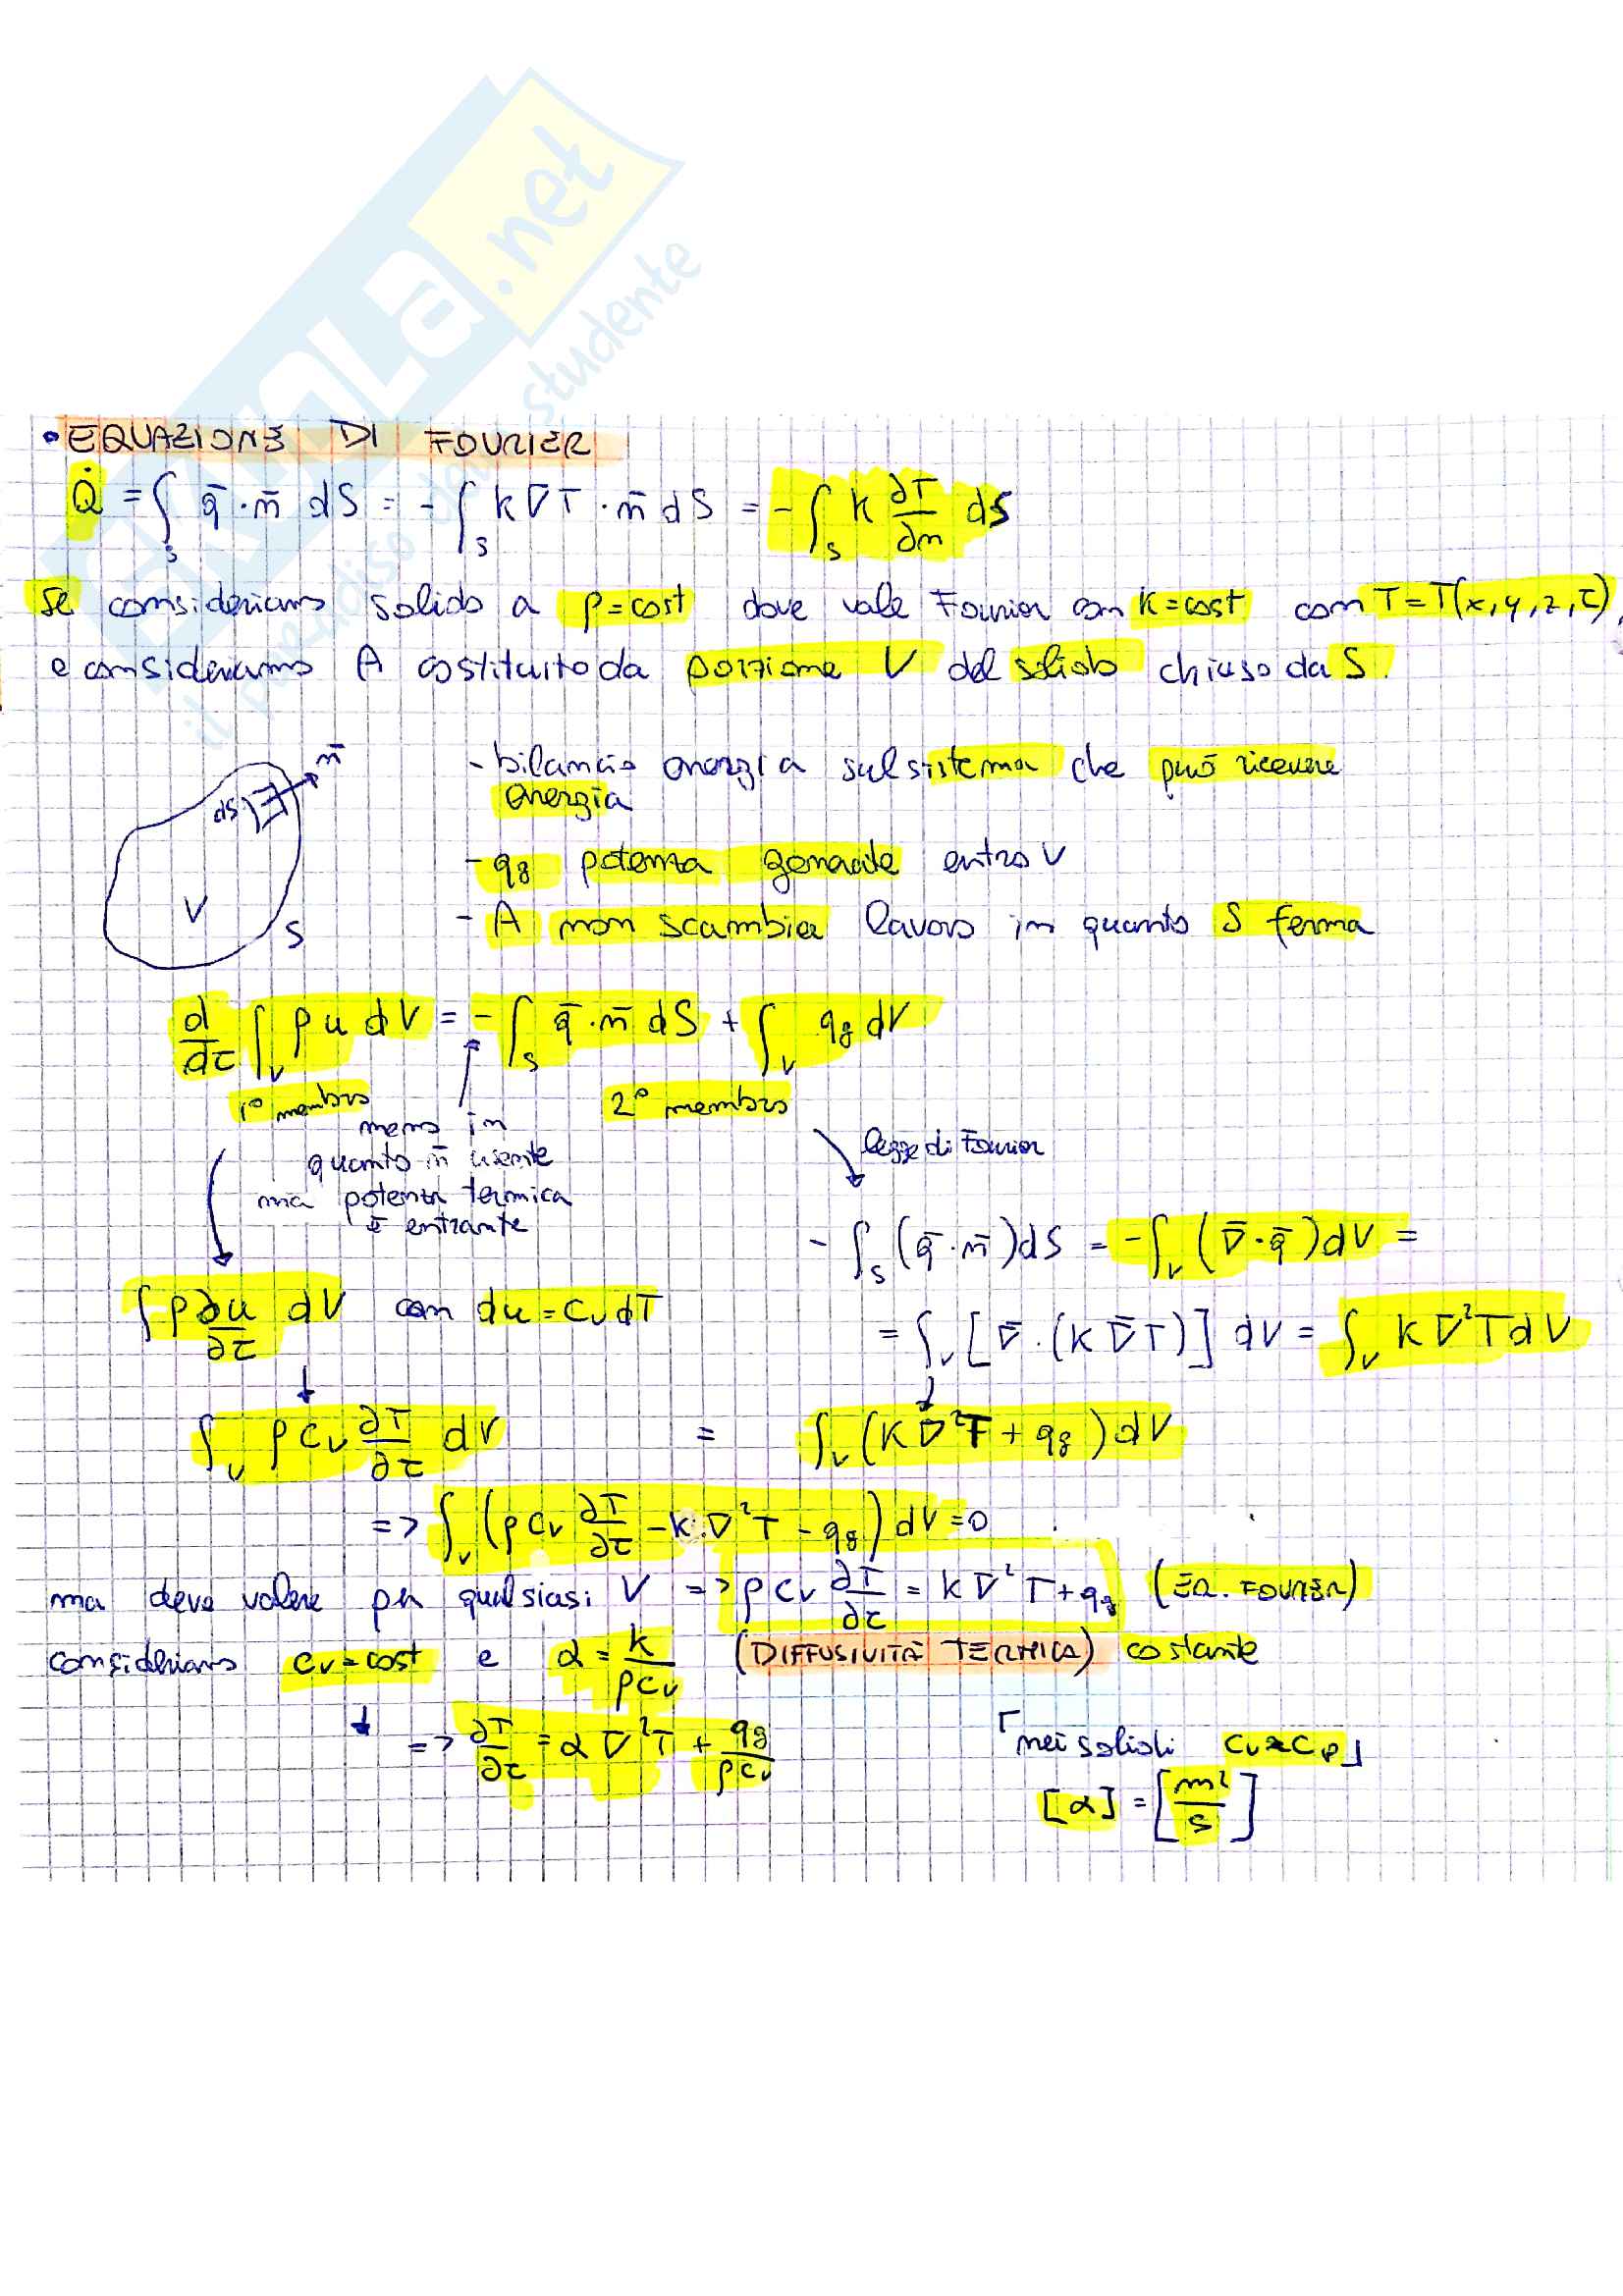 SKUOLA.net
il paradiso dello studente
• EQUAZIONE DI FOURIER
Q̇ = ∫_S q̄ · n̄ dS = - ∫_S k ∇T · n̄ dS = - ∫_S k ∂T/∂n dS
se consideriamo solido a ρ = cost dove vale Fourier con k = cost con T = T(x, y, z, τ),
e consideriamo A costituito da porzione V del solido chiuso da S.
n̄
dS
V
S
- bilancio energia sul sistema che può ricevere
energia
- qg potenza generata entro V
- A non scambia lavoro in quanto S ferma
d/dτ ∫_V ρ u dV = - ∫_S q̄ · n̄ dS + ∫_V qg dV
1° membro
2° membro
meno in
quanto n̄ uscente
ma potenza termica
è entrante
legge di Fourier
- ∫_S (q̄ · n̄) dS = - ∫_V (∇̄ · q̄) dV =
∫ ρ ∂u/∂τ dV con du = cv dT
= ∫_V [∇̄ · (k ∇̄T)] dV = ∫_V k ∇²T dV
∫_V ρ cv ∂T/∂τ dV = ∫_V (k ∇²T + qg) dV
=> ∫_V (ρ cv ∂T/∂τ - k ∇²T - qg) dV = 0
ma deve valere per qualsiasi V => ρ cv ∂T/∂τ = k ∇²T + qg (EQ. FOURIER)
consideriamo cv = cost e α = k/ρcv (DIFFUSIVITÀ TERMICA) costante
=> ∂T/∂τ = α ∇²T + qg/ρcv
⌈nei solidi cv ≈ cp⌋
[α] = [m²/s]